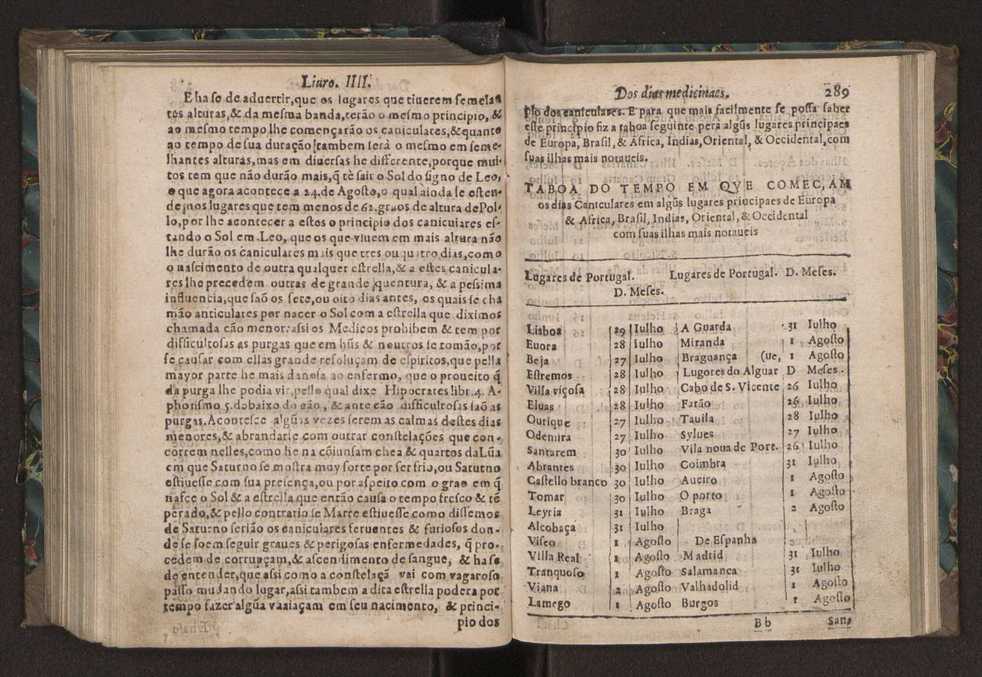 Liuro. IIII.
E ha se de aduertir, que os lugares que tiuerem semelan
tes alturas, & da mesma banda, terão o mesmo principio, &
ao mesmo tempo lhe começarão os caniculares, & quanto
ao tempo de sua duração tambem terà o mesmo em seme-
lhantes alturas, mas em diuersas he differente, porque mui-
tos tem que não durão mais, q̃ tè sair o Sol do signo de Leo,
o que agora acontece a 24. de Agosto, o qual ainda se esten-
de nos lugares que tem menos de 62. graos de altura de Pol-
lo, por lhe acontecer a estos o principio dos caniculares es-
tando o Sol em Leo, que os que viuem em mais altura não
lhe durão os caniculares mais que tres ou quatro dias, como
o nascimento de outra qualquer estrella, & a estes canicula-
res lhe precedem outras de grande quentura, & a pessima
influencia, que saõ os sete, ou oito dias antes, os quais se cha
mão anticulares por nacer o Sol com a estrella que diximos
chamada cão menor: assi os Medicos prohibem & tem por
difficultosas as purgas que em hũs & noutros se tomão, por
se causar com ellas grande resoluçam de espiritos, que pella
mayor parte he mais danosa ao enfermo, que o proueito q̃
da purga lhe podia vir, pello qual dixe Hipocrates libr. 4. A-
phorismo 5. debaixo do cão, & ante cão difficultosas saõ as
purgas. Acontesce algũas vezes serem as calmas destes dias
menores, & abrandarse com outrar constelações que con-
correm nelles, como he na cõiunsam chea & quartos da Lũa
em que Saturno se mostra muy forte por ser frio, ou Saturno
estiuesse com sua presença, ou por aspeito com o grao em q̃
nasce o Sol & a estrella que então causa o tempo fresco & tẽ
perado, & pello contrario se Marte estiuesse como dissemos
de Saturno serião os caniculares feruentes & furiosos don-
de se soem seguir graues & perigosas enfermedades, q̃ pro-
cedem de corrupçam, & ascendimento de sangue, & ha se
de entender, que assi como a constelaçã vai com vagaroso
passo mudando lugar, assi tambem a dita estrella podera por
tempo fazer algũa vaaiaçam em seu nacimento, & princi-
pio dos
Dos dias medicinaes. 289
pio dos caniculares. E para que mais facilmente se possa saber
este principio fiz a taboa seguinte pera algũs lugares principaes
de Europa, Brasil, & Africa, Indias, Oriental, & Occidental, com
suas ilhas mais notaueis.
TABOA DO TEMPO EM QVE COMEC,AM
os dias Caniculares em algũs lugares priucipaes de Europa
& Africa, Brasil, Indias, Oriental, & Occidental
com suas ilhas mais notaueis
Lugares de Portugal. Lugares de Portugal. D. Meses.
D. Meses.
Lisboa 29 Iulho A Guarda 31 Iulho
Euora 28 Iulho Miranda 1 Agosto
Beja 27 Iulho Braguança (ue, 1 Agosto
Estremos 28 Iulho Lugores do Alguar D Meses.
Villa viçosa 28 Iulho Cabo de S. Vicente 26 Iulho
Eluas 28 Iulho Farão 26 Iulho
Ourique 27 Iulho Tauila 28 Iulho
Odemira 27 Iulho Sylues 27 Iulho
Santarem 30 Iulho Vila noua de Port. 26 Iulho
Abrantes 30 Iulho Coimbra 31 Iulho
Castello branco 30 Iulho Aueiro 1 Agosto
Tomar 30 Iulho O porto 1 Agosto
Leyria 31 Iulho Braga 2 Agosto
Alcobaça 31 Iulho
Viseo 1 Agosto De Espanha
Villa Real 1 Agosto Madrid 31 Iulho
Tranquoso 1 Agosto Salamanca 31 Iulho
Viana 2 Agosto Valhadolid 1 Agosto
Lamego 1 Agosto Burgos 1 Agosto
Bb Sant